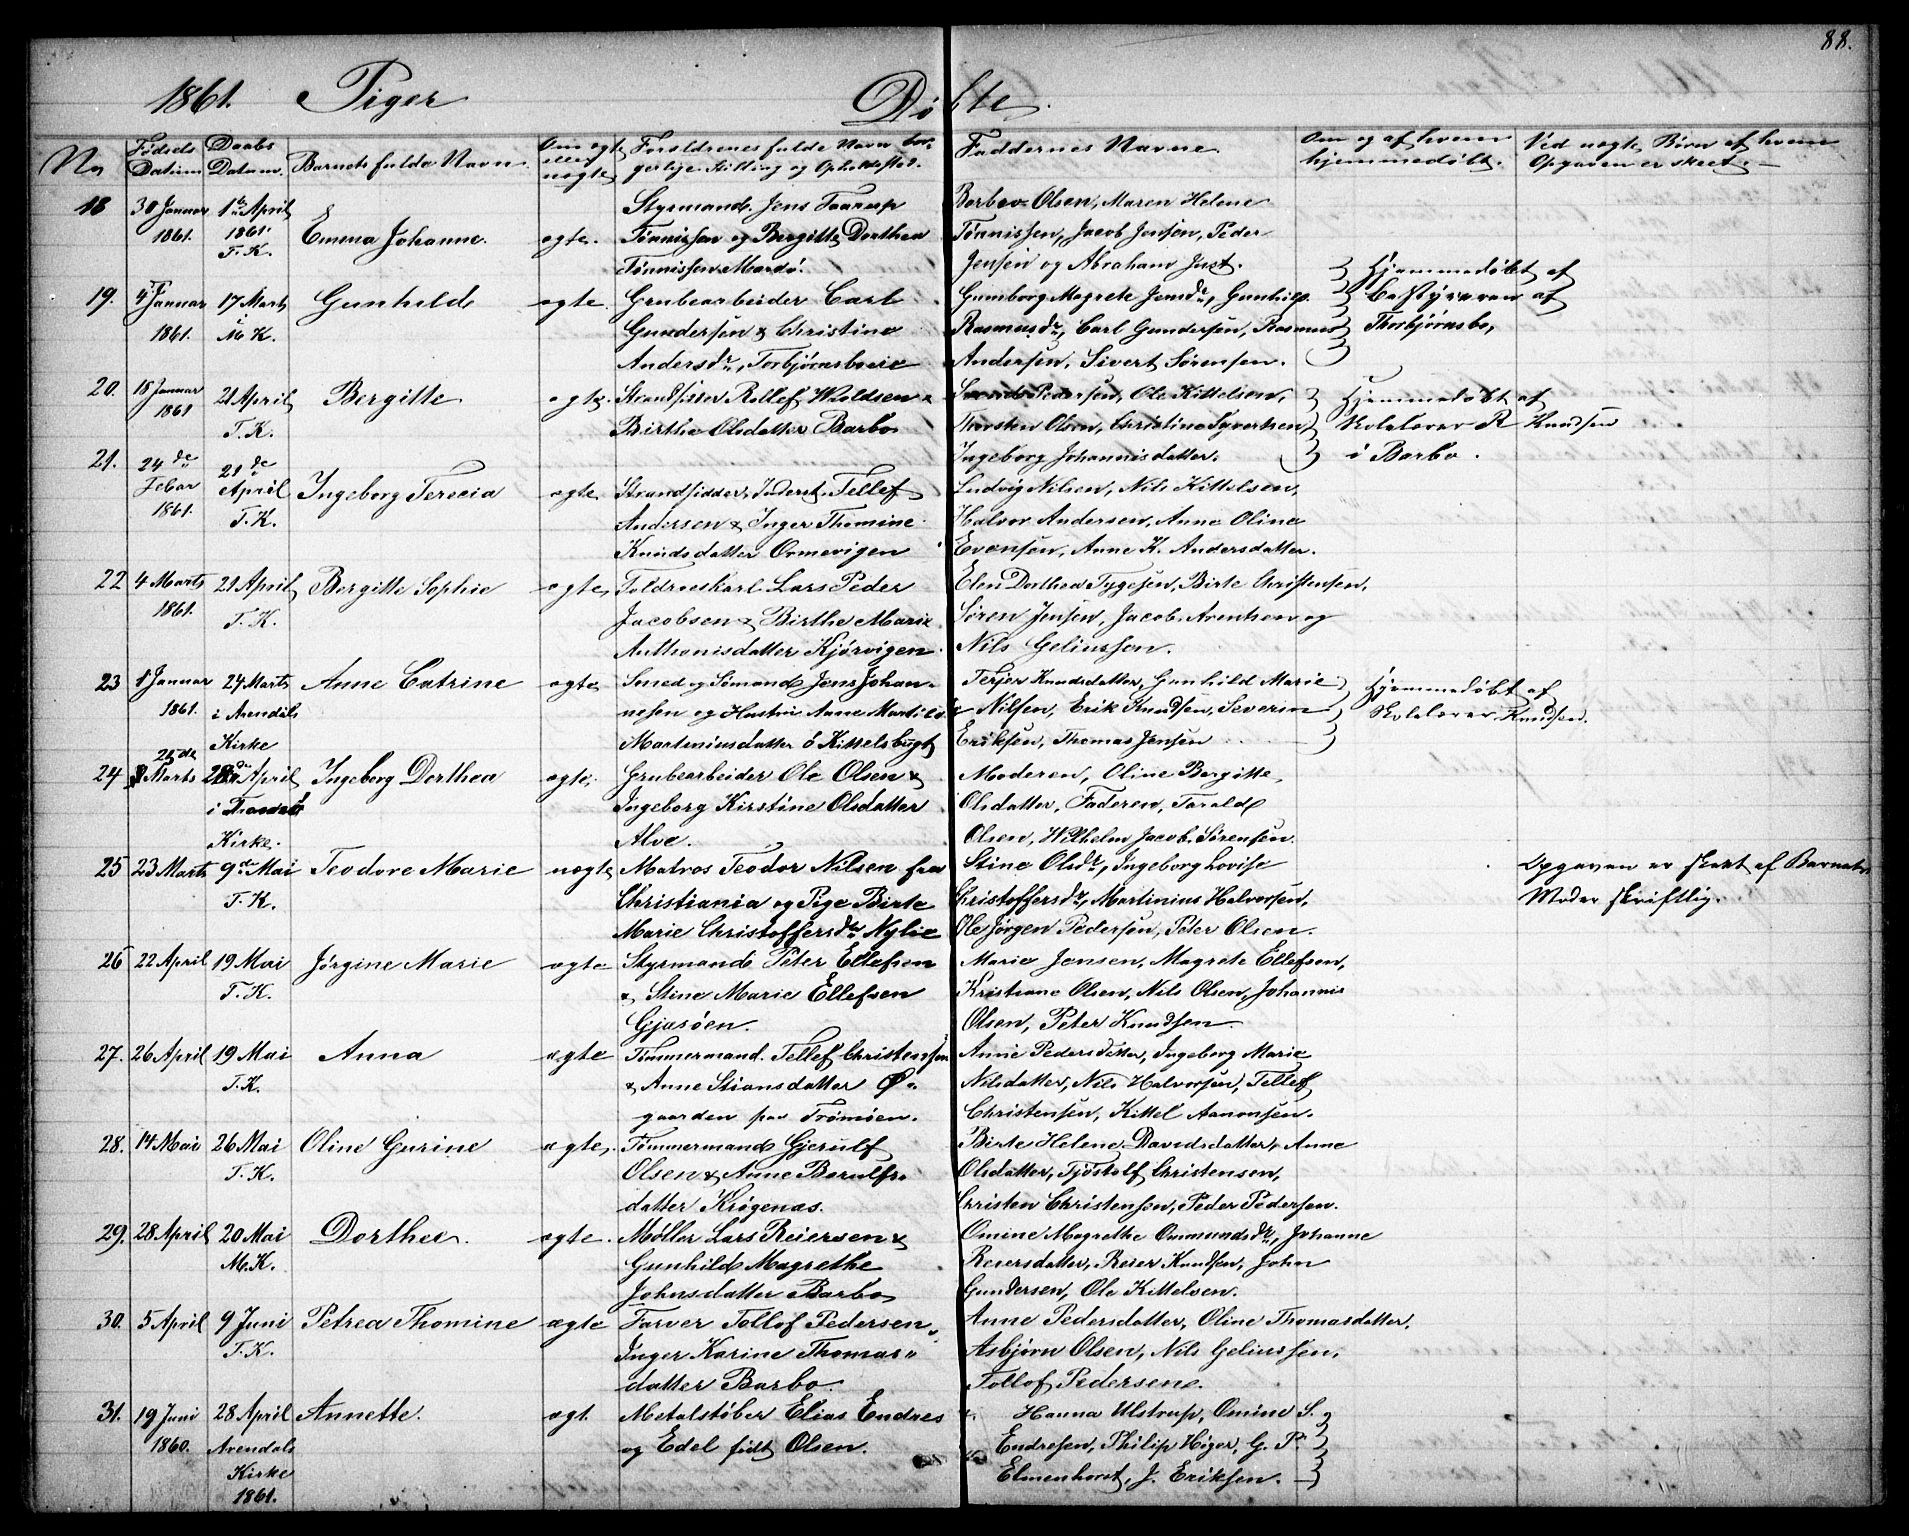 88.
1861. Piger Døbte.
No
Fødsels Datum
Daabs Datum.
Barnets fulde Navn
Om ægte eller uægte
Forældrenes fulde Navn, borgerlige Stilling og Opholdsted.
Faddernes Navne
Om og af hvem hjemmedøbt.
Ved uægte Børn af hvem Opgaven er skeet.
18 30 Januar 1ste April Styrmand Jens Taarup Barbro Olsen, Maren Helene
1861. 1861. Emma Johanne. ægte. Tønnissen og Bergitte Dorthea Tønnissen, Jacob Jensen, Peder
T. K. Tønnissen Mardø. Jensen og Abraham Just.
19. 4 Januar 17 Marts Gunhild ægte. Grubearbeider Carl Gunborg Magrete Jensdr, Gunhild Hjemmedøbt af
1861. i M. K. Gundersen & Christine Rasmusdr, Carl Gundersen, Rasmus Bestyreren af
Andersdr, Torbjørnsboeie Andersen, Sivert Sørensen. Thorbjørnsbo,
20. 18 Januar 21 April Bergitte ægte. Strandsidder Rollef Woldsen & Pedersen, Ole Kittelsen, Hjemmedøbt af
1861 T. K. Birthe Olsdatter Barbo Thorsten Olsen, Christine Syvertsen, Skolelærer R Knudsen
Ingeborg Johannisdatter. i Barbo.
21. 24de Febar 21de April Ingeborg Terecia ægte Strandsidder, Tellef Ludvig Nilsen, Nils Kittelsen,
1861. T. K. Andersen & Inger Thomine Halvor Andersen, Anne Oline
Knudsdatter Ormevigen Evensen, Anne K. Andersdatter.
22 4 Marts 21 April Bergitte Sophie ægte Toldroeskarl Lars Peder Elen Dorthea Tygesen, Birte Christensen,
1861. T. K. Jacobsen & Birthe Marie Søren Jensen, Jacob Arentsen og
Anthonisdatter Kjørvigen. Nils Geliussen.
23 8 Januar 24 Marts Anne Catrine ægte Smed og Sømand Jens Johan- Terjer Knudsdatter, Gunhild Marie Hjemmedøbt af
1861. i Arendals nesen og Hustru Anne Nilsen, Erik Knudsen, Severin Skolelærer Knudsen.
Kirke Martiniusdatter i Kittelsbugt Eriksen, Thomas Jensen
25de
24 Marts 28de April Ingeborg Dorthea ægte. Grubearbeider Ole Olsen & Moderen, Oline Bergitte
i Ingeborg Kirstine Olsdatter Olsdatter, Faderen, Tarald
Kirke. Alve. Olsen, Wilhelm Jacob Sørensen.
25 23 Marts 9de Mai Teodore Marie uægte Matros Teodor Nilsen fra Stine Olsdr, Ingeborg Lovise Opgaven er skeet af Barnets
T. K. Christiania og Pige Birte Christoffersdr, Martinius Halvorsen, Moder skriftlig.
Marie Christoffersdr Nylie Ole Jørgen Pedersen, Peter Olsen.
26 22 April 19 Mai Jørgine Marie ægte Styrmand Peter Ellefsen Marie Jensen, Magrete Ellefsen,
T. K. & Stine Marie Ellefsen Kristiane Olsen, Nils Olsen, Johannis
Gjæsøen. Olsen, Peter Knudsen
27. 26 April 19 Mai Anna ægte Tømmermand Tellef Christensen Anne Pedersdatter, Ingeborg Marie
T. K. & Anne Stiansdatter Ø- Nilsdatter, Nils Halvorsen, Tellef
gaarden paa Trømøen. Christensen, Kittel Aanonsen.
28. 14 Mai 26 Mai Oline Gurine ægte. Tømmermand Gjerulf Birte Helene Davidsdatter, Anne
T. K. Olsen & Anne Berulfs- Olsdatter, Tjøstolf Christensen,
datter Krøgenæs. Christen Christensen, Peder Pedersen.
29. 28 April 20 Mai Dorthea. ægte. Møller Lars Reiersen & Omine Magrethe Ommundsdr, Johanne
M. K. Gunhild Magrethe Reiersdatter, Reier Knudsen, John
Johnsdatter Barbo Gundersen, Ole Kittelsen.
30. 5 April 9 Juni Petrea Thomine ægte Farver Tollof Pedersen Anne Pedersdatter, Oline Thomasdatter,
T. K. Inger Karine Thomas- Asbjørn Olsen, Nils Geliussen,
datter Barbo. Tollof Pedersen.
31. 19 Juni 28 April Annette. ægt. Metalstøber Elias Endres Hanna Ulstrup, Omine S.
1860. Arendals og Edel født Olsen. Endresen, Philip Høyer, G. P.
Kirke Elmenhorst, J. Eriksen.
1861.